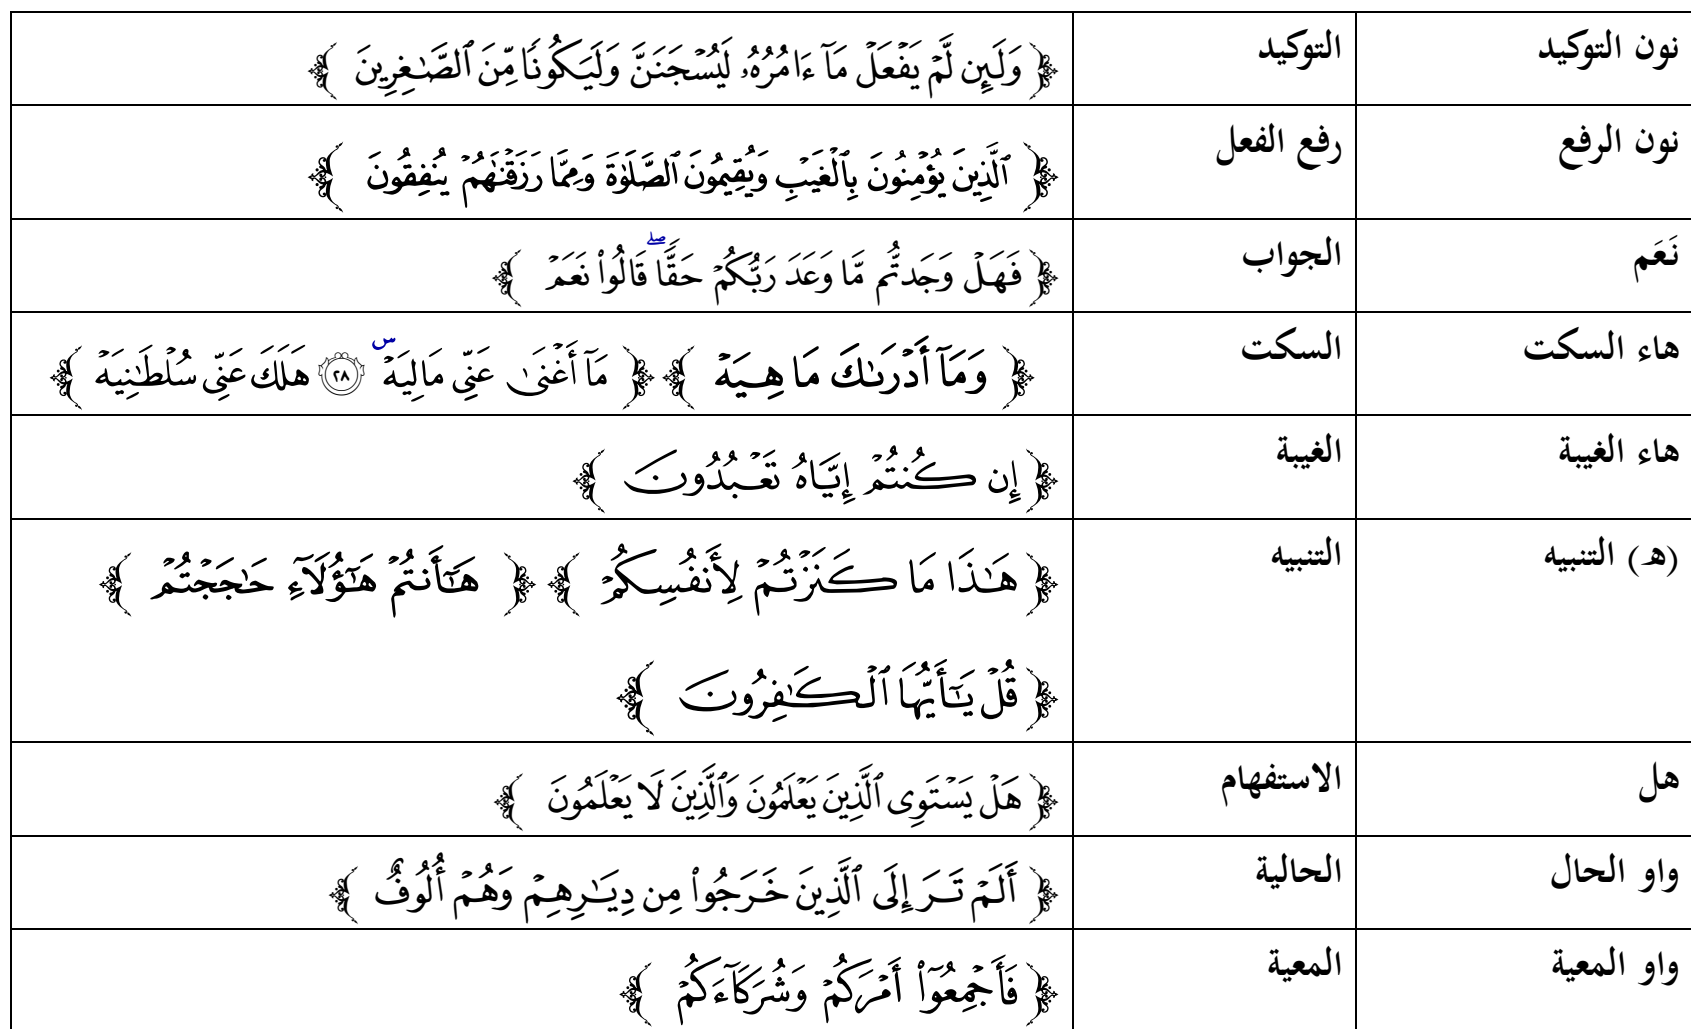 نون التوكيد التوكيد ﴿ وَلَئِن لَّمْ يَفْعَلْ مَآ ءَامُرُهُۥ لَيُسْجَنَنَّ وَلَيَكُونًا مِّنَ ٱلصَّٰغِرِينَ ﴾
نون الرفع رفع الفعل ﴿ ٱلَّذِينَ يُؤْمِنُونَ بِٱلْغَيْبِ وَيُقِيمُونَ ٱلصَّلَوٰةَ وَمِمَّا رَزَقْنَٰهُمْ يُنفِقُونَ ﴾
نَعَم الجواب ﴿ فَهَلْ وَجَدتُّم مَّا وَعَدَ رَبُّكُمْ حَقًّا ۖ قَالُوا۟ نَعَمْ ﴾
هاء السكت السكت ﴿ وَمَآ أَدْرَىٰكَ مَا هِيَهْ ﴾ ﴿ مَآ أَغْنَىٰ عَنِّى مَالِيَهْ ۜ ٢٨ هَلَكَ عَنِّى سُلْطَٰنِيَهْ ﴾
هاء الغيبة الغيبة ﴿ إِن كُنتُمْ إِيَّاهُ تَعْبُدُونَ ﴾
(هـ) التنبيه التنبيه ﴿ هَٰذَا مَا كَنَزْتُمْ لِأَنفُسِكُمْ ﴾ ﴿ هَٰٓأَنتُمْ هَٰٓؤُلَآءِ حَٰجَجْتُمْ ﴾
﴿ قُلْ يَٰٓأَيُّهَا ٱلْكَٰفِرُونَ ﴾
هل الاستفهام ﴿ هَلْ يَسْتَوِى ٱلَّذِينَ يَعْلَمُونَ وَٱلَّذِينَ لَا يَعْلَمُونَ ﴾
واو الحال الحالية ﴿ أَلَمْ تَرَ إِلَى ٱلَّذِينَ خَرَجُوا۟ مِن دِيَٰرِهِمْ وَهُمْ أُلُوفٌ ﴾
واو المعية المعية ﴿ فَأَجْمِعُوٓا۟ أَمْرَكُمْ وَشُرَكَآءَكُمْ ﴾